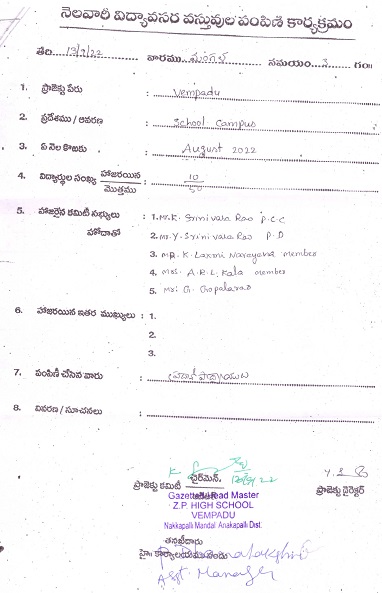 నెలవారీ విద్యావసర వస్తువుల పంపిణీ కార్యక్రమం
తేది...13/9/22 వారము...మంగళ సమయం...గం॥
1. ప్రాజెక్టు పేరు : Vempadu
2. ప్రదేశము / ఆవరణ : School Campus
3. ఏ నెల కొఱకు : August 2022
4. విద్యార్థుల సంఖ్య హాజరయిన / మొత్తము : 10 / 50
5. హాజరైన కమిటీ సభ్యులు : 1. Mr. K. Srinivasa Rao P.C.C
హోదాతో 2. Mr. Y. Srinivasa Rao P.D
3. MR. K. Laxmi Narayana member
4. Mrs. A.R.L. Kala member
5. Mr. G. Gopalarao
6. హాజరయిన ఇతర ముఖ్యులు : 1.
2.
3.
7. పంపిణీ చేసిన వారు :
8. వివరణ / సూచనలు :
ప్రాజెక్టు కమిటీ చైర్మెన్, ప్రాజెక్టు డైరెక్టర్
Gazetted Head Master
Z.P. HIGH SCHOOL
VEMPADU
Nakkapalli Mandal Anakapalli Dist.
Asst Manager